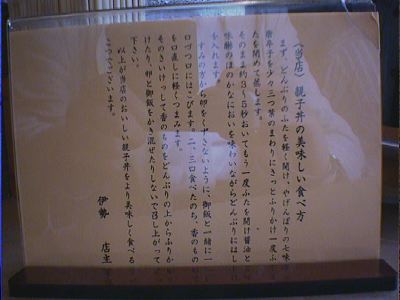 (当店) 親子丼の美味しい食べ方
まず、どんぶりのふたを軽く開け、やげんぼりの七味
唐辛子を少々三つ葉のまわりにさっとふりかけ一度ふ
たを閉めて蒸します。
そのまま約3~5秒おいてもう一度ふたを開け醤油と
味醂のほのかなにおいを味わいながらどんぶりにはし
を入れます。
すみの方から卵をくずさないように、御飯と一緒に一
口づつ口にはこびます。二、三口食べたのち、香のもの
を口直しに軽くつまみます。
そのさいけっして香のものをどんぶりの上からふりか
けたり、卵と御飯をかき混ぜたりしないで召し上がって
下さい。
以上が当店のおいしい親子丼をより美味しく食べる
こつでございます。
伊勢 店主